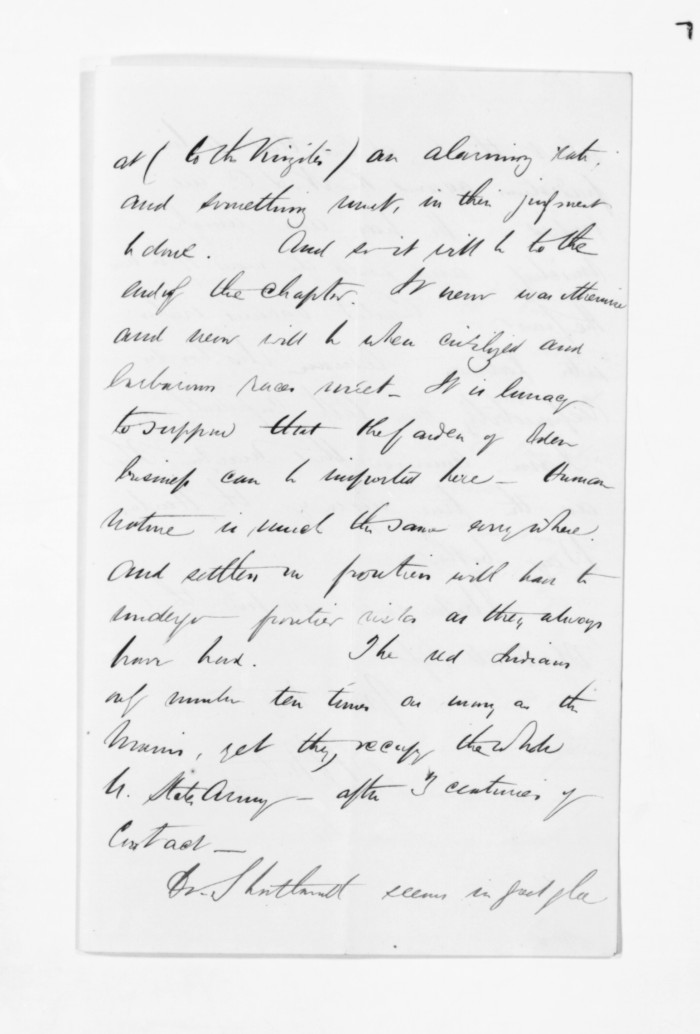 7
at (to the Kingites) an alarming rate,
and something must, in their judgment
be done. And so it will be to the
end of the chapter. It never was otherwise
and never will be when civilized and
barbarous races meet - It is lunacy
to suppose that the Garden of Eden
business can be imported here - Human
nature is much the same everywhere.
And settlers on frontiers will have to
undergo frontier risks as they always
have had. The red Indians
only number ten times as many as the
Maoris, yet they occupy the whole
U. States Army - after 3 centuries of
Contact -
Dr. Shortland seems in great glee